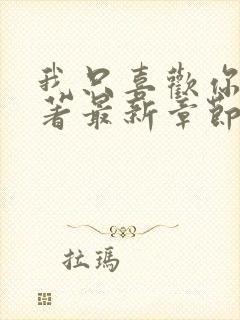 我只喜歡你
著最新章節
拉瑪